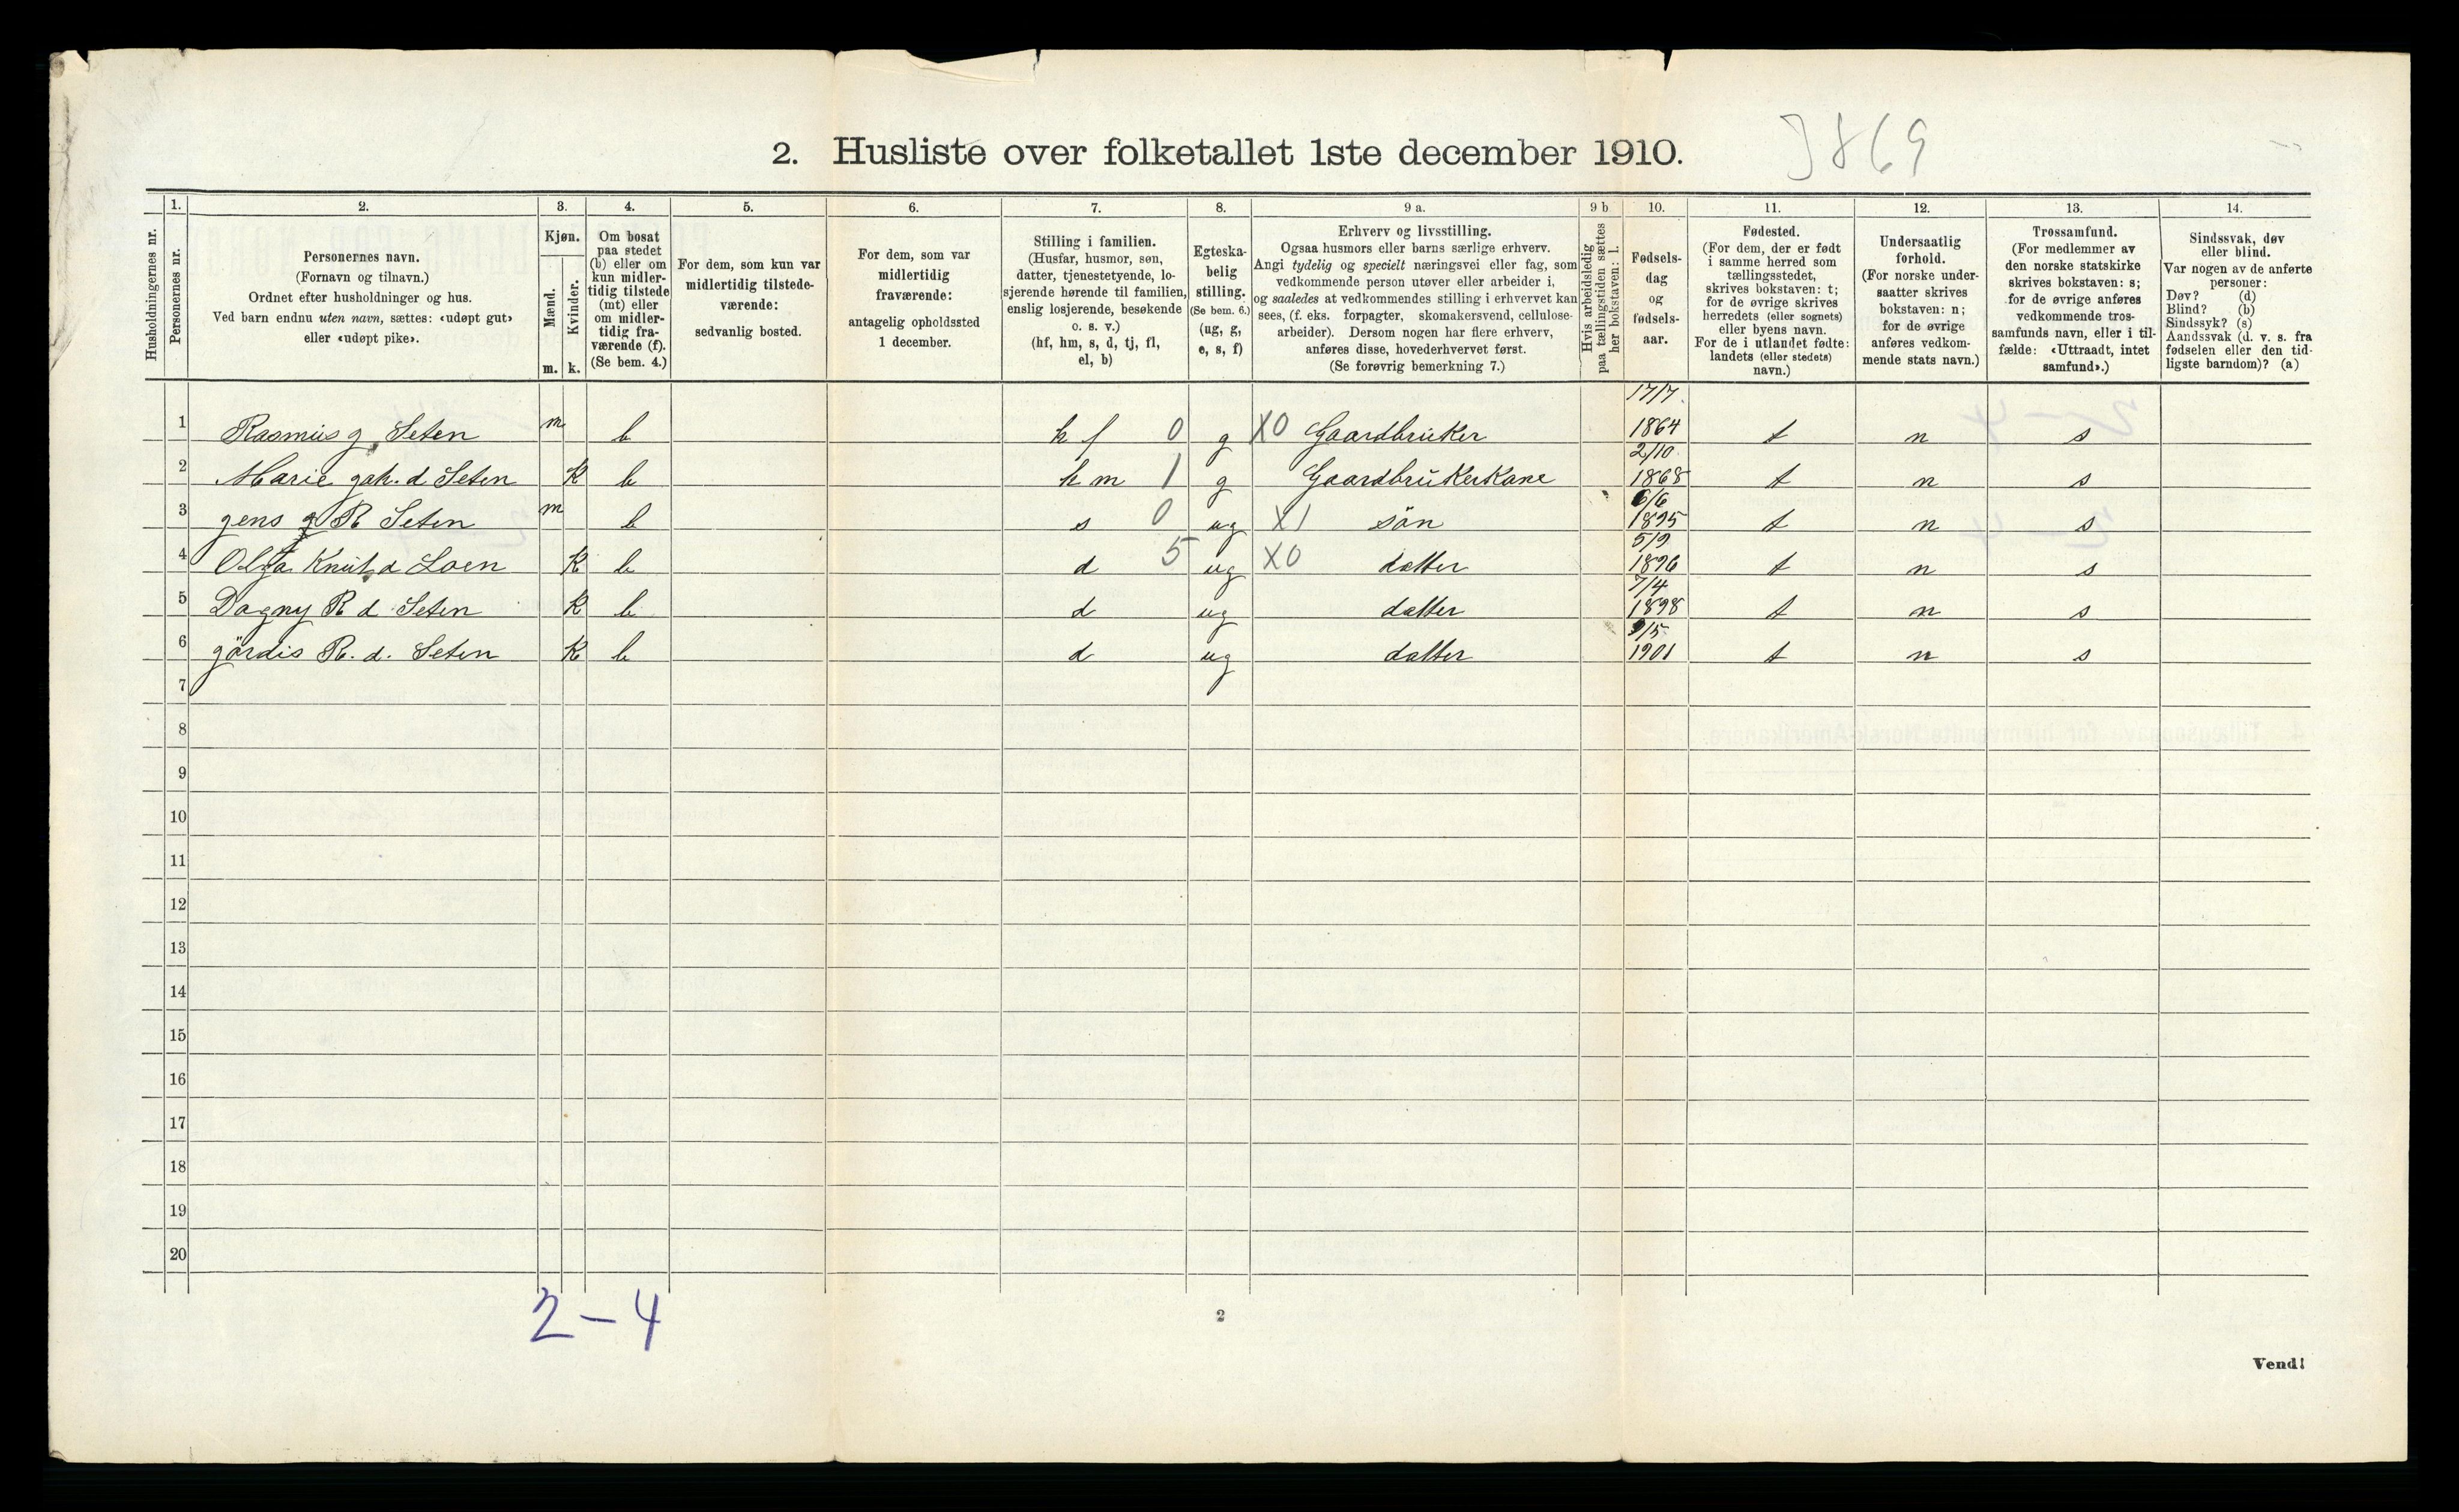 2. Husliste over folketallet 1ste december 1910.
1. 2. 3. 4. 5. 6. 7. 8. 9 a. 9 b 10. 11. 12. 13. 14.
Husholdningernes nr.
Personernes nr.
Personernes navn.
(Fornavn og tilnavn.)
Ordnet efter husholdninger og hus.
Ved barn endnu uten navn, sættes: «udøpt gut»
eller «udøpt pike».
Kjøn.
Mænd.
Kvinder.
m. k.
Om bosat
paa stedet
(b) eller om
kun midler-
tidig tilstede
(mt) eller
om midler-
tidig fra-
værende (f).
(Se bem. 4.)
For dem, som kun var
midlertidig tilstede-
værende:
sedvanlig bosted.
For dem, som var
midlertidig
fraværende:
antagelig opholdssted
1 december.
Stilling i familien.
(Husfar, husmor, søn,
datter, tjenestetyende, lo-
sjerende hørende til familien,
enslig losjerende, besøkende
o. s. v.)
(hf, hm, s, d, tj, fl,
el, b)
Egteska-
belig
stilling.
(Se bem. 6.)
(ug, g,
e, s, f)
Erhverv og livsstilling.
Ogsaa husmors eller barns særlige erhverv.
Angi tydelig og specielt næringsvei eller fag, som
vedkommende person utøver eller arbeider i,
og saaledes at vedkommendes stilling i erhvervet kan
sees, (f. eks. forpagter, skomakersvend, cellulose-
arbeider). Dersom nogen har flere erhverv,
anføres disse, hovederhvervet først.
(Se forøvrig bemerkning 7.)
Hvis arbeidsledig
paa tællingstiden sættes
her bokstaven: l.
Fødsels-
dag
og
fødsels-
aar.
Fødested.
(For dem, der er født
i samme herred som
tællingsstedet,
skrives bokstaven: t;
for de øvrige skrives
herredets (eller sognets)
eller byens navn.
For de i utlandet fødte:
landets (eller stedets)
navn.)
Undersaatlig
forhold.
(For norske under-
saatter skrives
bokstaven: n;
for de øvrige
anføres vedkom-
mende stats navn.)
Trossamfund.
(For medlemmer av
den norske statskirke
skrives bokstaven: s;
for de øvrige anføres
vedkommende tros-
samfunds navn, eller i til-
fælde: «Uttraadt, intet
samfund».)
Sindssvak, døv
eller blind.
Var nogen av de anførte
personer:
Døv? (d)
Blind? (b)
Sindssyk? (s)
Aandssvak (d. v. s. fra
fødselen eller den tid-
ligste barndom)? (a)
17/7.
1 Rasmus g. Seten m b h f 0 g X0 Gaardbruker 1864 t n s
2/10.
2 Marie gak. d Seten K b h m 1 g GaardbrukerKane 1868 t n s
6/6
3 gens g R Seten m b s 0 ug X1 sön 1895 t n s
5/9
4 Olga Knut d Loen K b d 5 ug X0 datter 1896 t n s
7/4
5 Dagny R d Seten K b d ug datter 1898 t n s
9/5
6 gördis R. d. Seten K b d ug datter 1901 t n s
7
8
9
10
11
12
13
14
15
16
17
18
19
20
2-4
2
Vend!